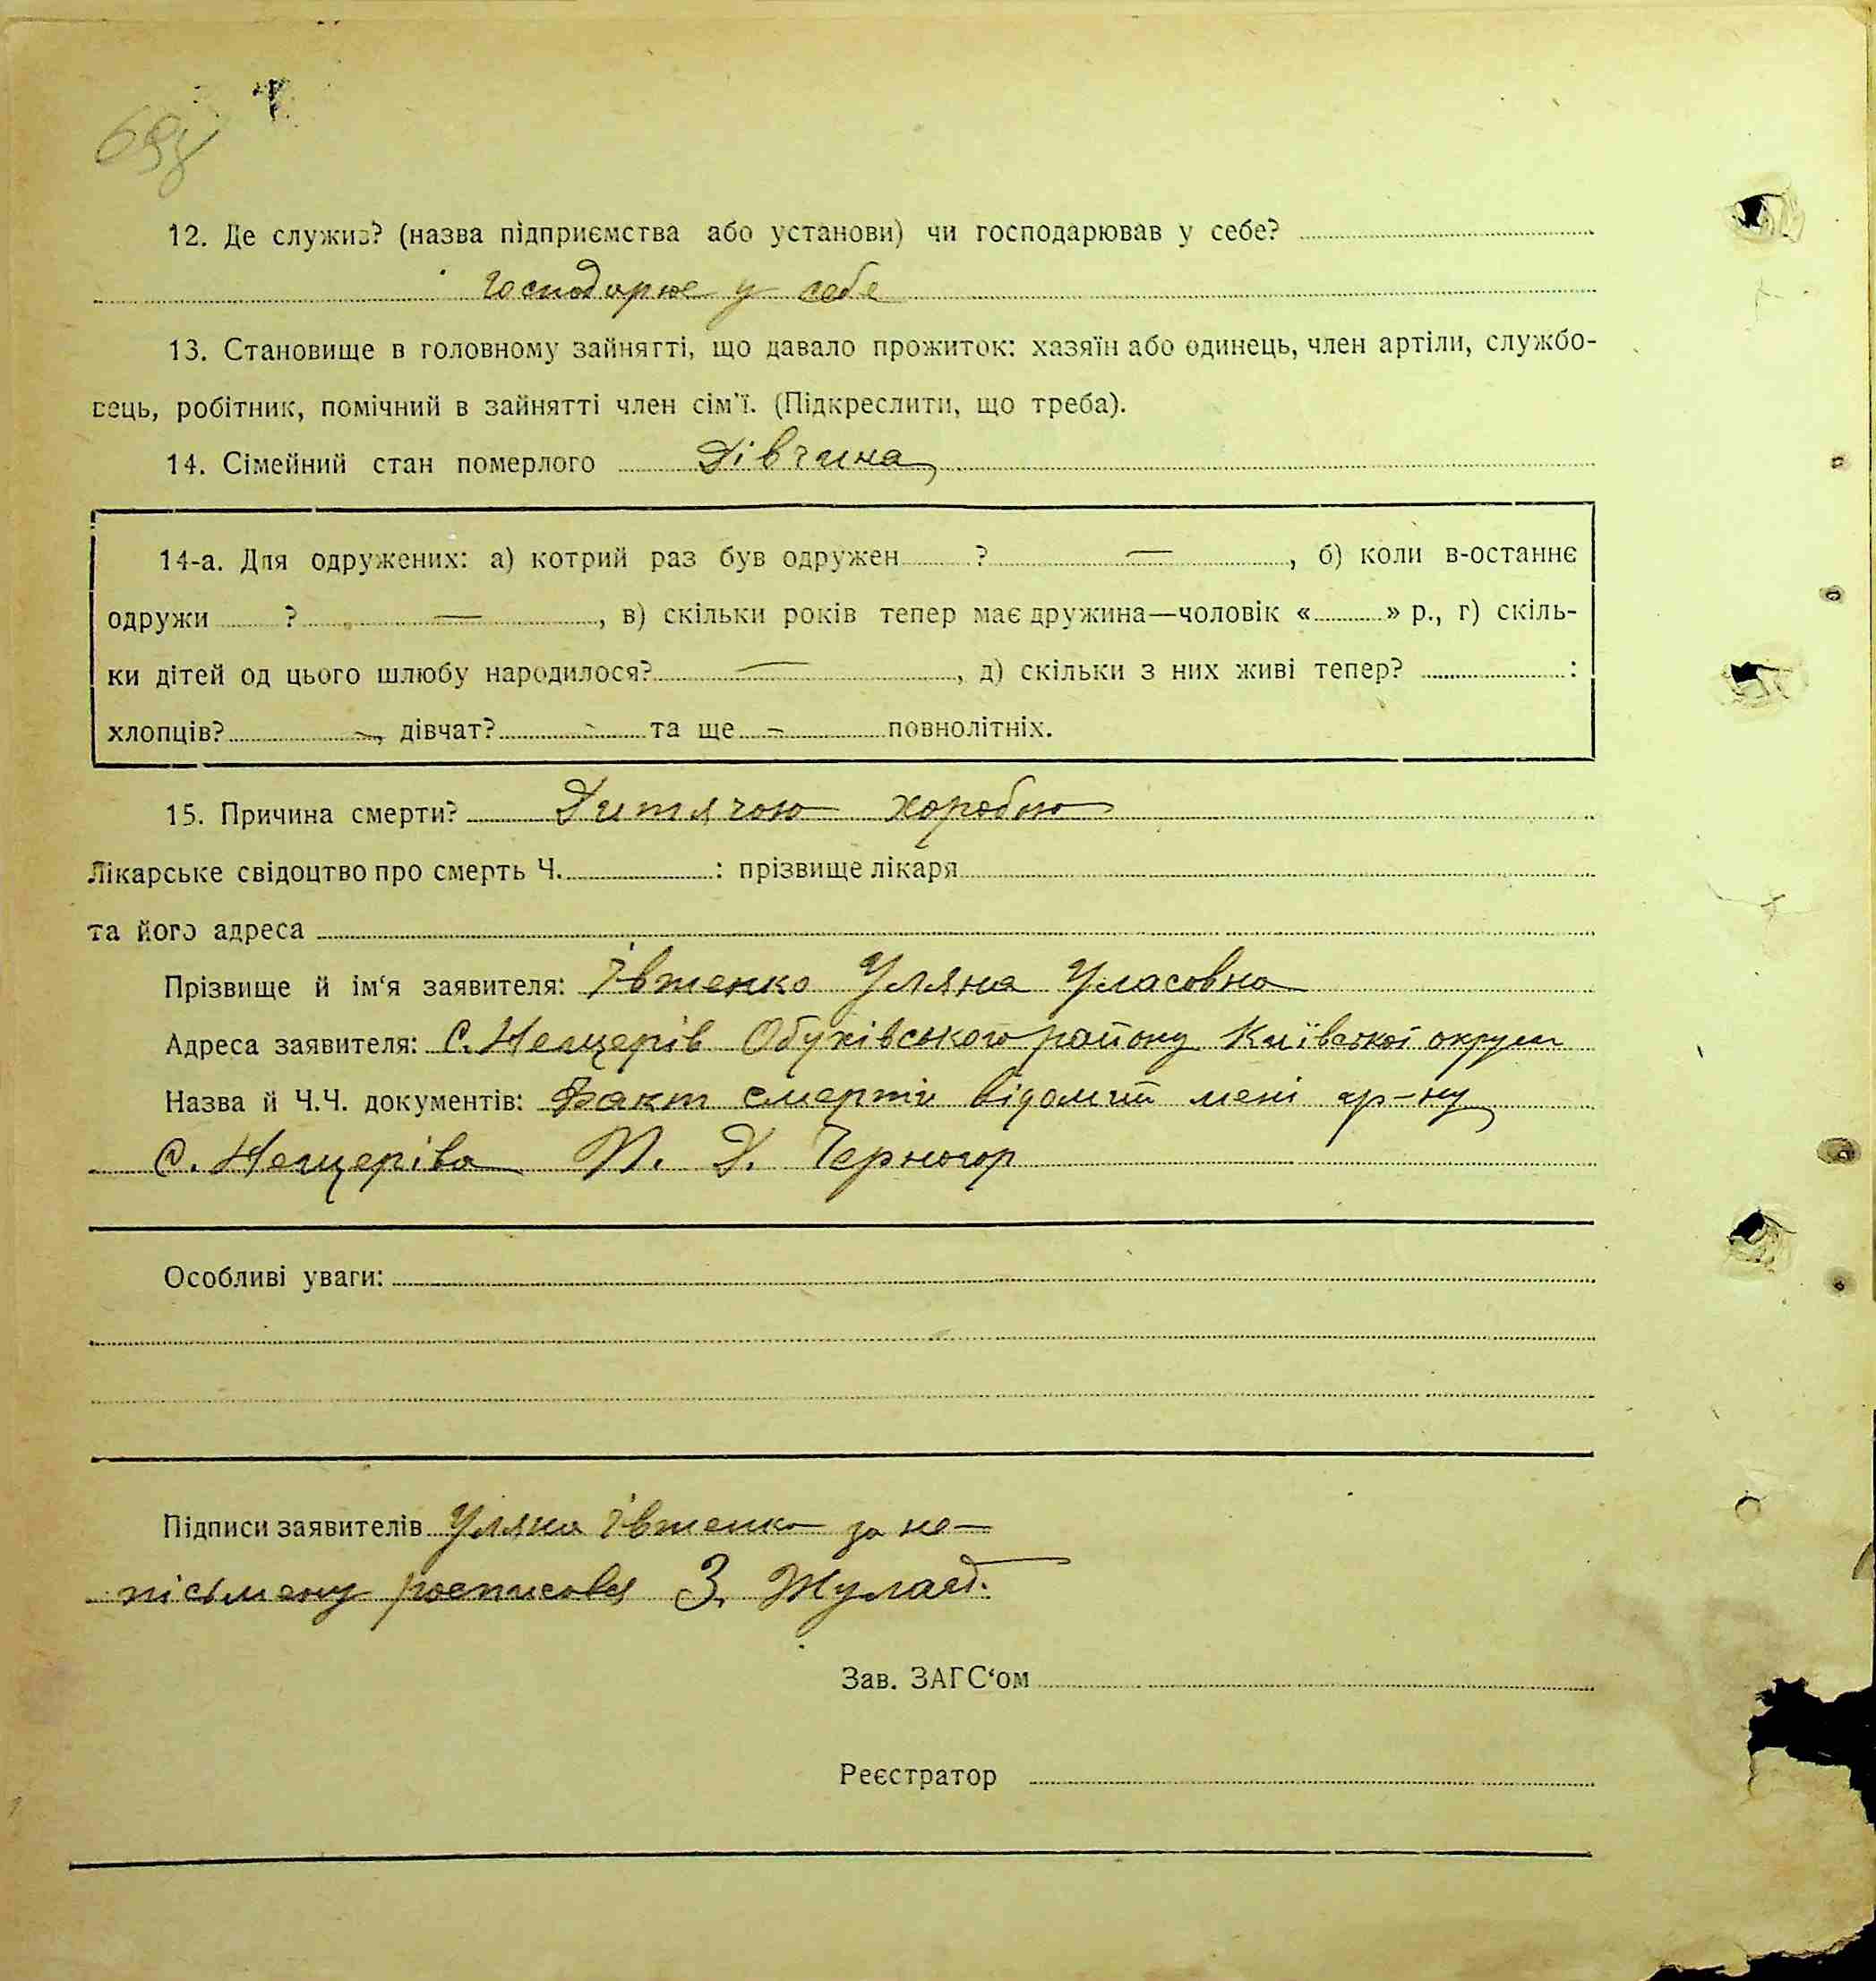 12. Де служив? (назва підприємства або установи) чи господарював у себе?
господарює у себе
13. Становище в головному зайнятті, що давало прожиток: хазяїн або одинець, член артіли, службо-
вець, робітник, помічний в зайнятті член сім'ї. (Підкреслити, що треба).
14. Сімейний стан померлого Дівчина
14-а. Для одружених: а) котрий раз був одружен ? — , б) коли в-останнє
одружи ? — , в) скільки років тепер має дружина—чоловік « » р., г) скіль-
ки дітей од цього шлюбу народилося? — , д) скільки з них живі тепер? :
хлопців? —, дівчат? - та ще - повнолітніх.
15. Причина смерти? Дитячою хоробою
Лікарське свідоцтво про смерть Ч. : прізвище лікаря
та його адреса
Прізвище й ім'я заявителя: Івтенко Уляна Уласовна
Адреса заявителя: С. Нещерів Обухівського району Київської округи
Назва й Ч.Ч. документів: Факт смерти відомий мені гр-ну
С. Нещерів П. Д. Черногор
Особливі уваги:
Підписи заявителів Уляна Івтенко за не-
письмену росписовся З.
Зав. ЗАГС'ом
Реєстратор